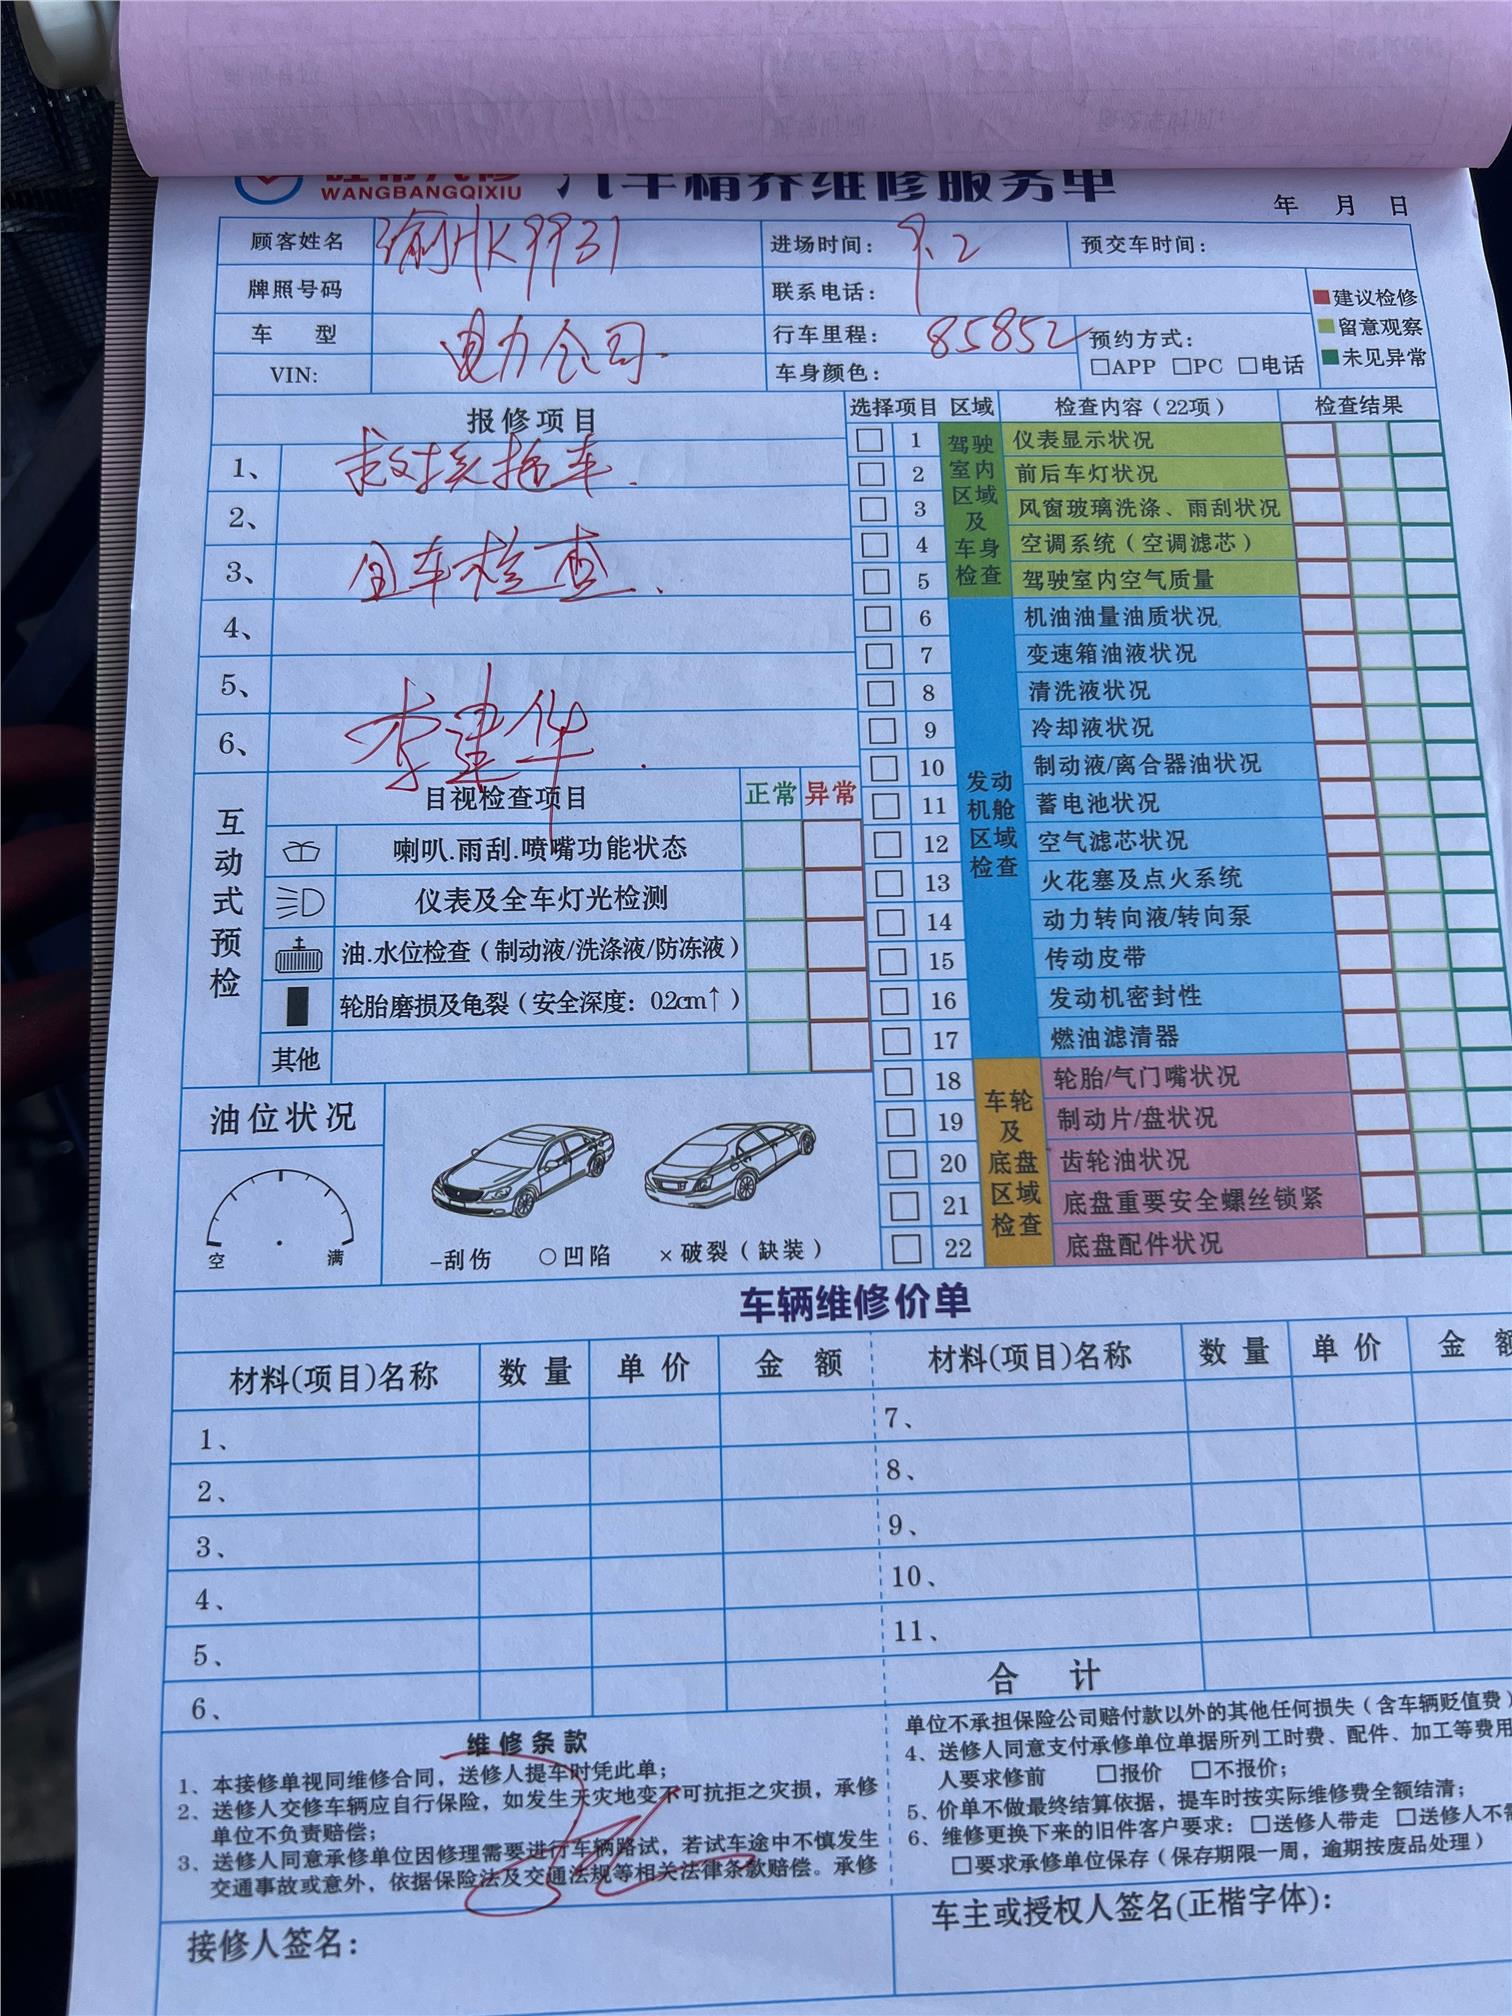 WANGBANGQIXIU
汽车精养维修服务单
年 月 日
顾客姓名 渝HK9931 进场时间： 9.2 预交车时间：
牌照号码 联系电话：
车 型 电力公司. 行车里程： 85852 预约方式：
□APP □PC □电话
VIN: 车身颜色：
建议检修
留意观察
未见异常
报修项目
1、 救援拖车.
2、
3、 全车检查.
4、
5、
6、 李建华.
选择项目 区域 检查内容（22项） 检查结果
驾驶室内区域及车身检查
1 仪表显示状况
2 前后车灯状况
3 风窗玻璃洗涤、雨刮状况
4 空调系统（空调滤芯）
5 驾驶室内空气质量
发动机舱区域检查
6 机油油量油质状况
7 变速箱油液状况
8 清洗液状况
9 冷却液状况
10 制动液/离合器油状况
11 蓄电池状况
12 空气滤芯状况
13 火花塞及点火系统
14 动力转向液/转向泵
15 传动皮带
16 发动机密封性
17 燃油滤清器
车轮及底盘区域检查
18 轮胎/气门嘴状况
19 制动片/盘状况
20 齿轮油状况
21 底盘重要安全螺丝锁紧
22 底盘配件状况
互动式预检
目视检查项目 正常 异常
喇叭.雨刮.喷嘴功能状态
仪表及全车灯光检测
油.水位检查（制动液/洗涤液/防冻液）
轮胎磨损及龟裂（安全深度：0.2cm↑）
其他
油位状况
空 满
–刮伤 ○凹陷 ×破裂（缺装）
车辆维修价单
材料(项目)名称 数量 单价 金额 材料(项目)名称 数量 单价 金额
1、 7、
2、 8、
3、 9、
4、 10、
5、 11、
6、 合 计
维修条款
1、本接修单视同维修合同，送修人提车时凭此单；
2、送修人交修车辆应自行保险，如发生天灾地变不可抗拒之灾损，承修
单位不负责赔偿；
3、送修人同意承修单位因修理需要进行车辆路试，若试车途中不慎发生
交通事故或意外，依据保险法及交通法规等相关法律条款赔偿。承修
单位不承担保险公司赔付款以外的其他任何损失（含车辆贬值费）
4、送修人同意支付承修单位单据所列工时费、配件、加工等费用
人要求修前 □报价 □不报价；
5、价单不做最终结算依据，提车时按实际维修费全额结清；
6、维修更换下来的旧件客户要求：□送修人带走 □送修人不需
□要求承修单位保存（保存期限一周，逾期按废品处理）
接修人签名：
车主或授权人签名(正楷字体)：